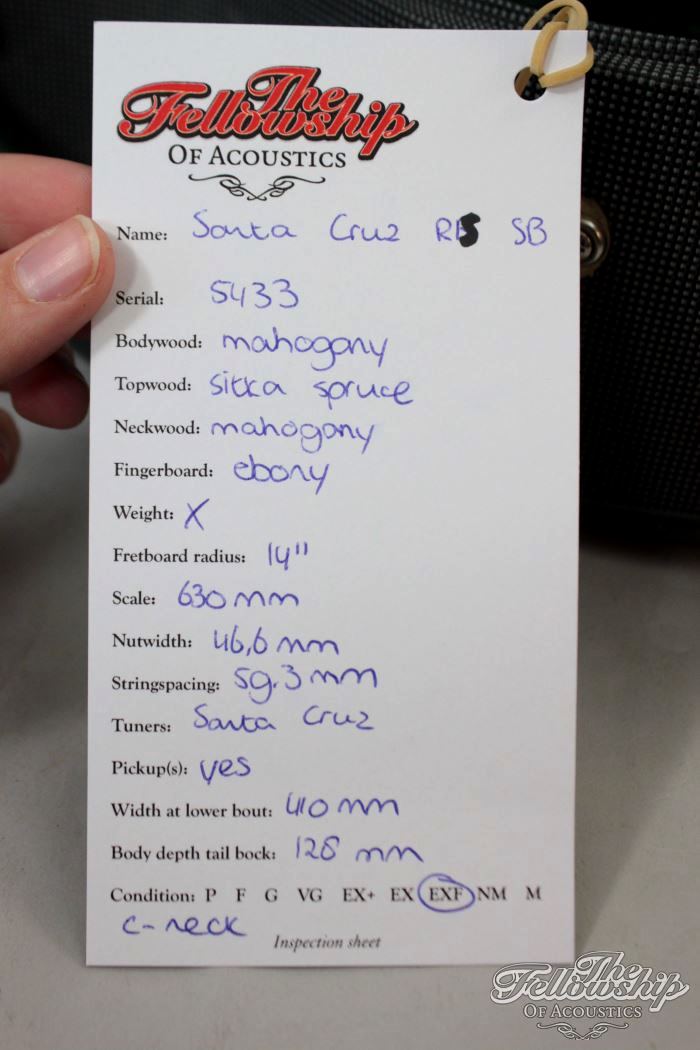 The
Fellowship
OF ACOUSTICS
Name: Santa Cruz RS SB
Serial: 5433
Bodywood: mahogany
Topwood: sitka spruce
Neckwood: mahogany
Fingerboard: ebony
Weight: X
Fretboard radius: 14"
Scale: 630 mm
Nutwidth: 46,6 mm
Stringspacing: 59.3 mm
Tuners: Santa Cruz
Pickup(s): yes
Width at lower bout: 410 mm
Body depth tail bock: 128 mm
Condition: P F G VG EX+ EX EXF NM M
C-neck
Inspection sheet
The
Fellowship
OF ACOUSTICS